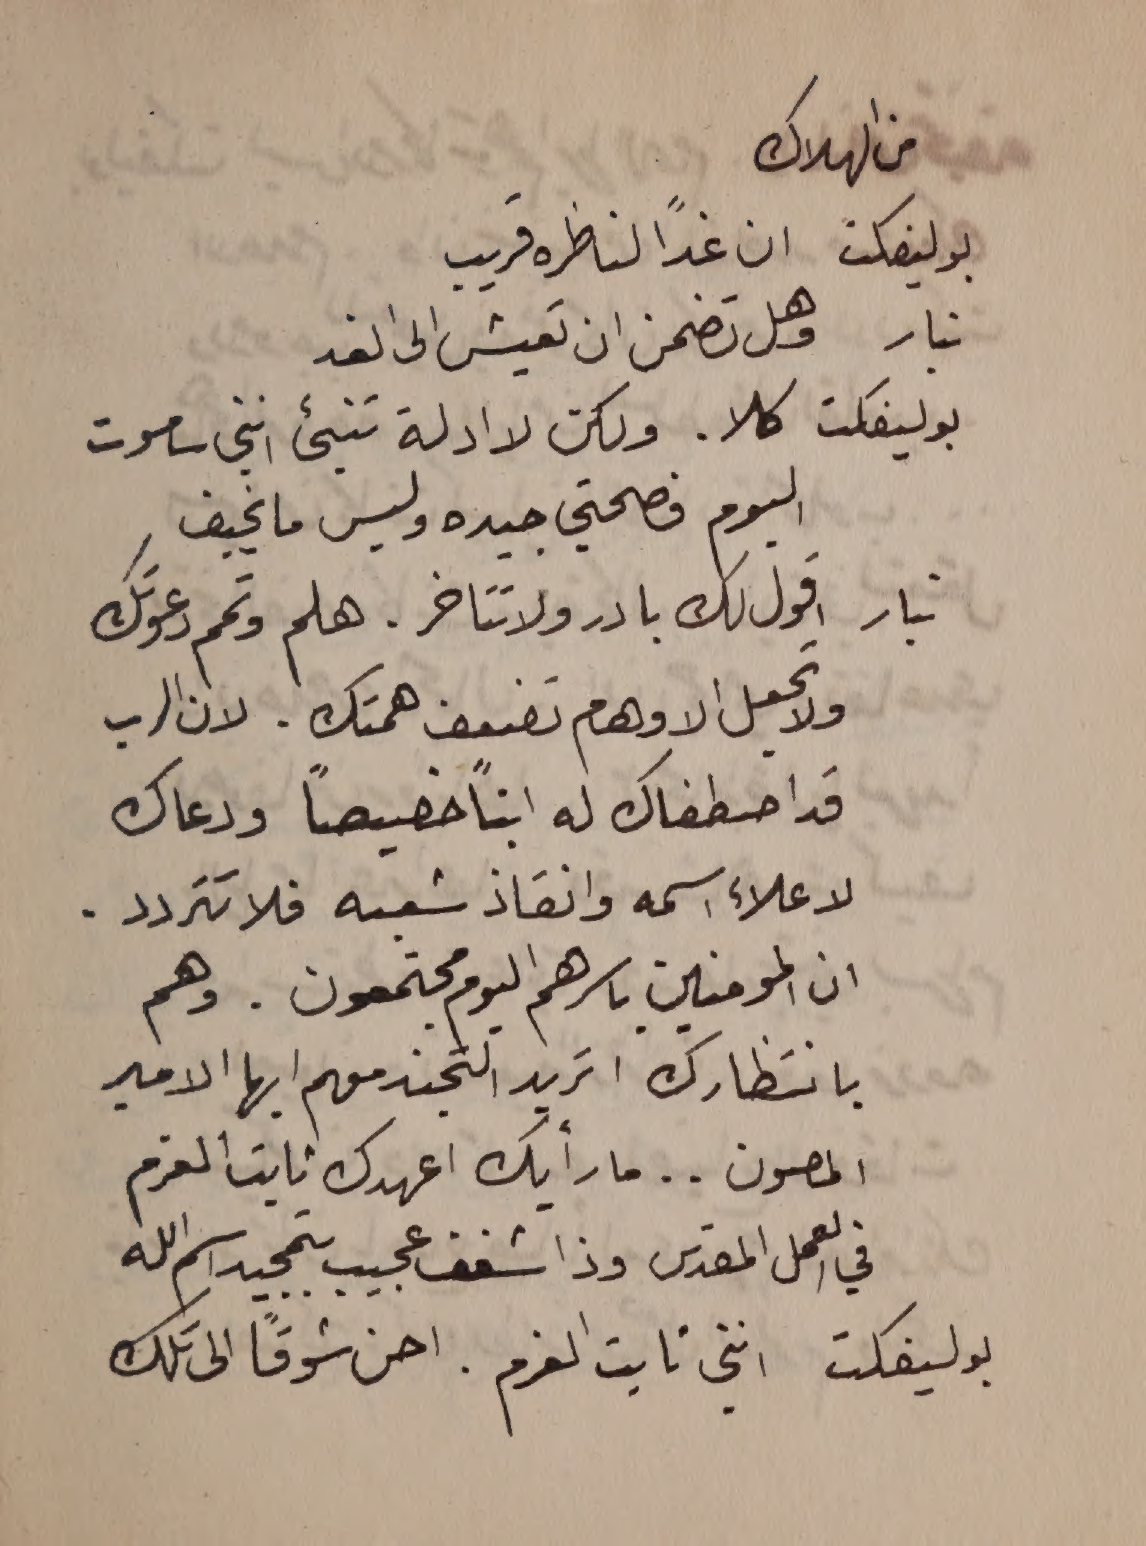 من الهلاك
بوليفكت ان غداً لناظره قريب
نبار وهل تضمن ان تعيش الى الغد
بوليفكت كلا . ولكن لا ادلة تنبئ انني ساموت
اليوم فصحتي جيده وليس ما يخيف
نبار اقول لك بادر ولا تتاخر . هلم وتمم دعوتك
ولا تجعل الاوهام تضعف همتك . لان الرب
قد اصطفاك له ابناً خصيصاً ودعاك
لاعلاء اسمه وانقاذ شعبه فلا تتردد .
ان المومنين باسرهم اليوم مجتمعون . وهم
بانتظارك اتريد التجند معهم ايها الامير
المصون .. ما رأيك اعهدك ثابت العزم
في العمل المقدس وذا شغف عجيب بتمجيد اسم الله
بوليفكت انني ثابت العزم . احن شوقاً الى تلك